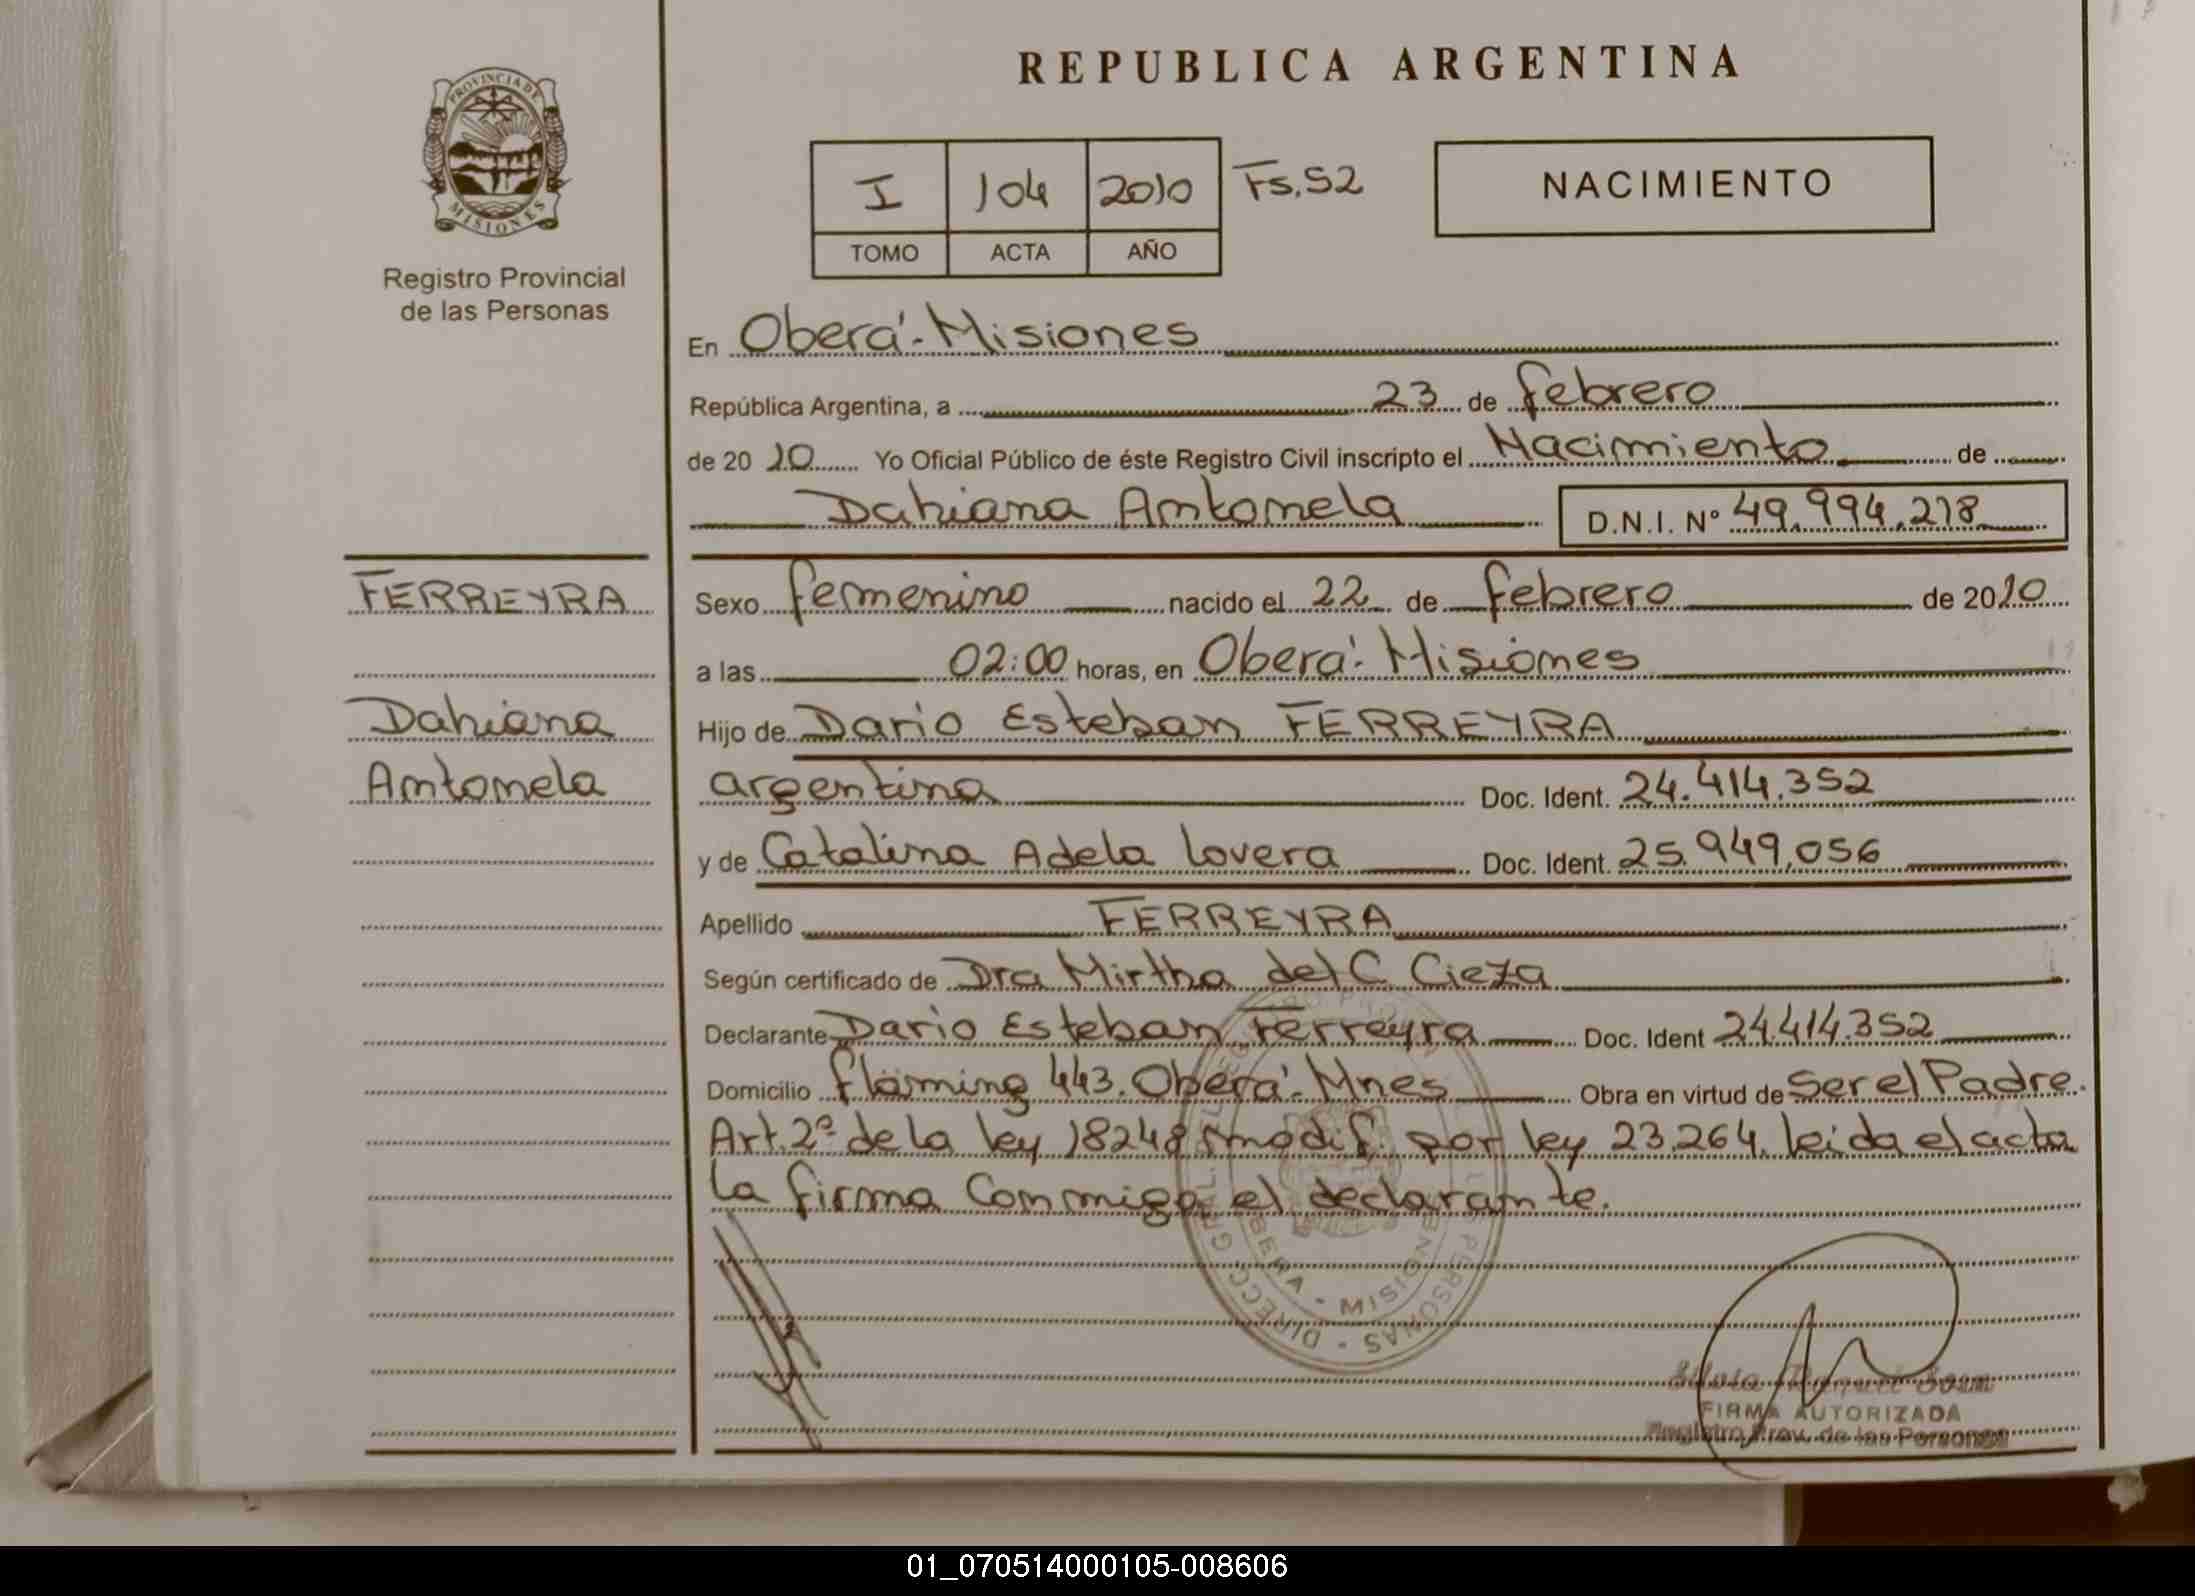 REPUBLICA ARGENTINA
PROVINCIA DE
MISIONES
Registro Provincial
de las Personas
I 104 2010 Fs.52
TOMO ACTA AÑO
NACIMIENTO
En Oberá-Misiones
República Argentina, a 23 de febrero
de 2010 Yo Oficial Público de éste Registro Civil inscripto el Nacimiento de
Dahiana Antonela D.N.I. Nº 49.994.278
FERREYRA
Dahiana
Antonela
Sexo femenino nacido el 22 de febrero de 2010
a las 02:00 horas, en Oberá-Misiones
Hijo de Dario Esteban FERREYRA
argentina Doc. Ident. 24.414.352
y de Catalina Adela Lovera Doc. Ident. 25.949.056
Apellido FERREYRA
Según certificado de Dra Mirtha del C. Cieza
Declarante Dario Esteban Ferreyra Doc. Ident 24.414.352
Domicilio flaming 443. Oberá-Mnes Obra en virtud de Ser el Padre.
Art. 2º de la ley 18248 modif. por ley 23.264. leida el acta
la firma Conmigo el declarante.
MISIONES
PERSONAS
Silvia Raquel
FIRMA AUTORIZADA
Registro Prov. de las Personas
01_070514000105-008606